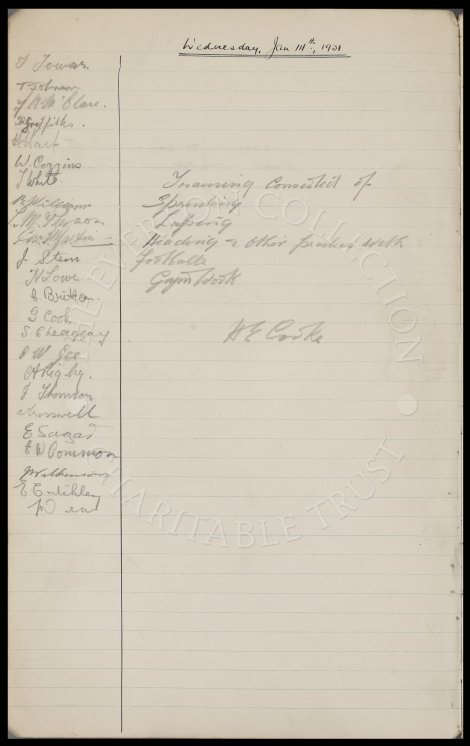 Wednesday, Jan 14th, 1931
J Towers
T Johnson
J R McClare
T Griffiths.
W. Coggins
T White
B Williams
J. Stein
H Lowe
C. Britton.
G Cook
W Gee
A Rigby.
J Thomson
E Sagar
E W Common
J Wilkinson
E Critchley
Training Consisted of
Sprinting
Lapping
Heading & other practice with
footballs
Gym Work
H E Cooke
THE EVERTON COLLECTION
CHARITABLE TRUST